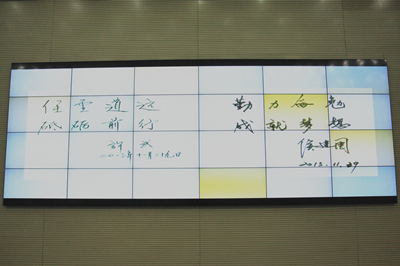 任重道远
砥砺前行
許武
勤力奋勉
成就梦想
侯建国
2013.11.29